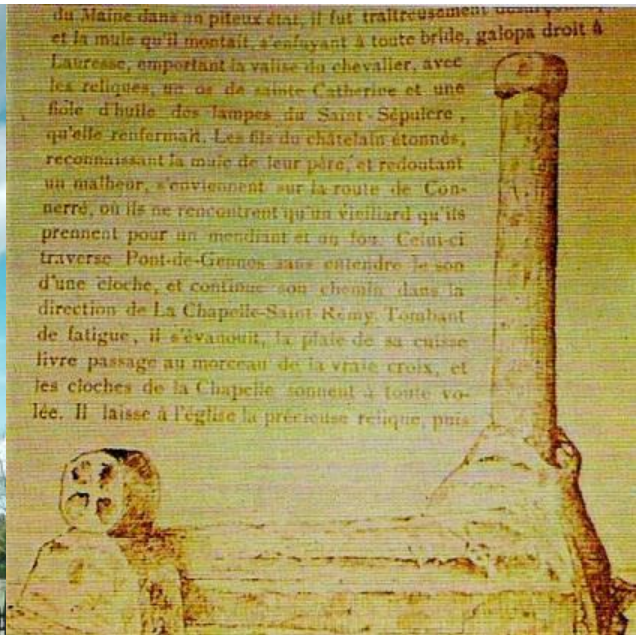 du Maine dans un piteux état, il fut traîtreusement
et la mule qu'il montait, s'enfuyant à toute bride, galopa droit à
Lauresse, emportant la valise du chevalier, avec
les reliques, un os de sainte Catherine et une
fiole d'huile des lampes du Saint-Sépulcre,
qu'elle renfermait. Les fils du châtelain étonnés,
reconnaissant la mule de leur père, et redoutant
un malheur, s'enviennent sur la route de Con-
nerré, où ils ne rencontrent qu'un vieillard qu'ils
prennent pour un mendiant et un fou. Celui-ci
traverse Pont-de-Gennes sans entendre le son
d'une cloche, et continue son chemin dans la
direction de La Chapelle-Saint-Rémy. Tombant
de fatigue, il s'évanouit, la plaie de sa cuisse
livre passage au morceau de la vraie croix, et
les cloches de la Chapelle sonnent à toute vo-
lée. Il laisse à l'église la précieuse relique, puis